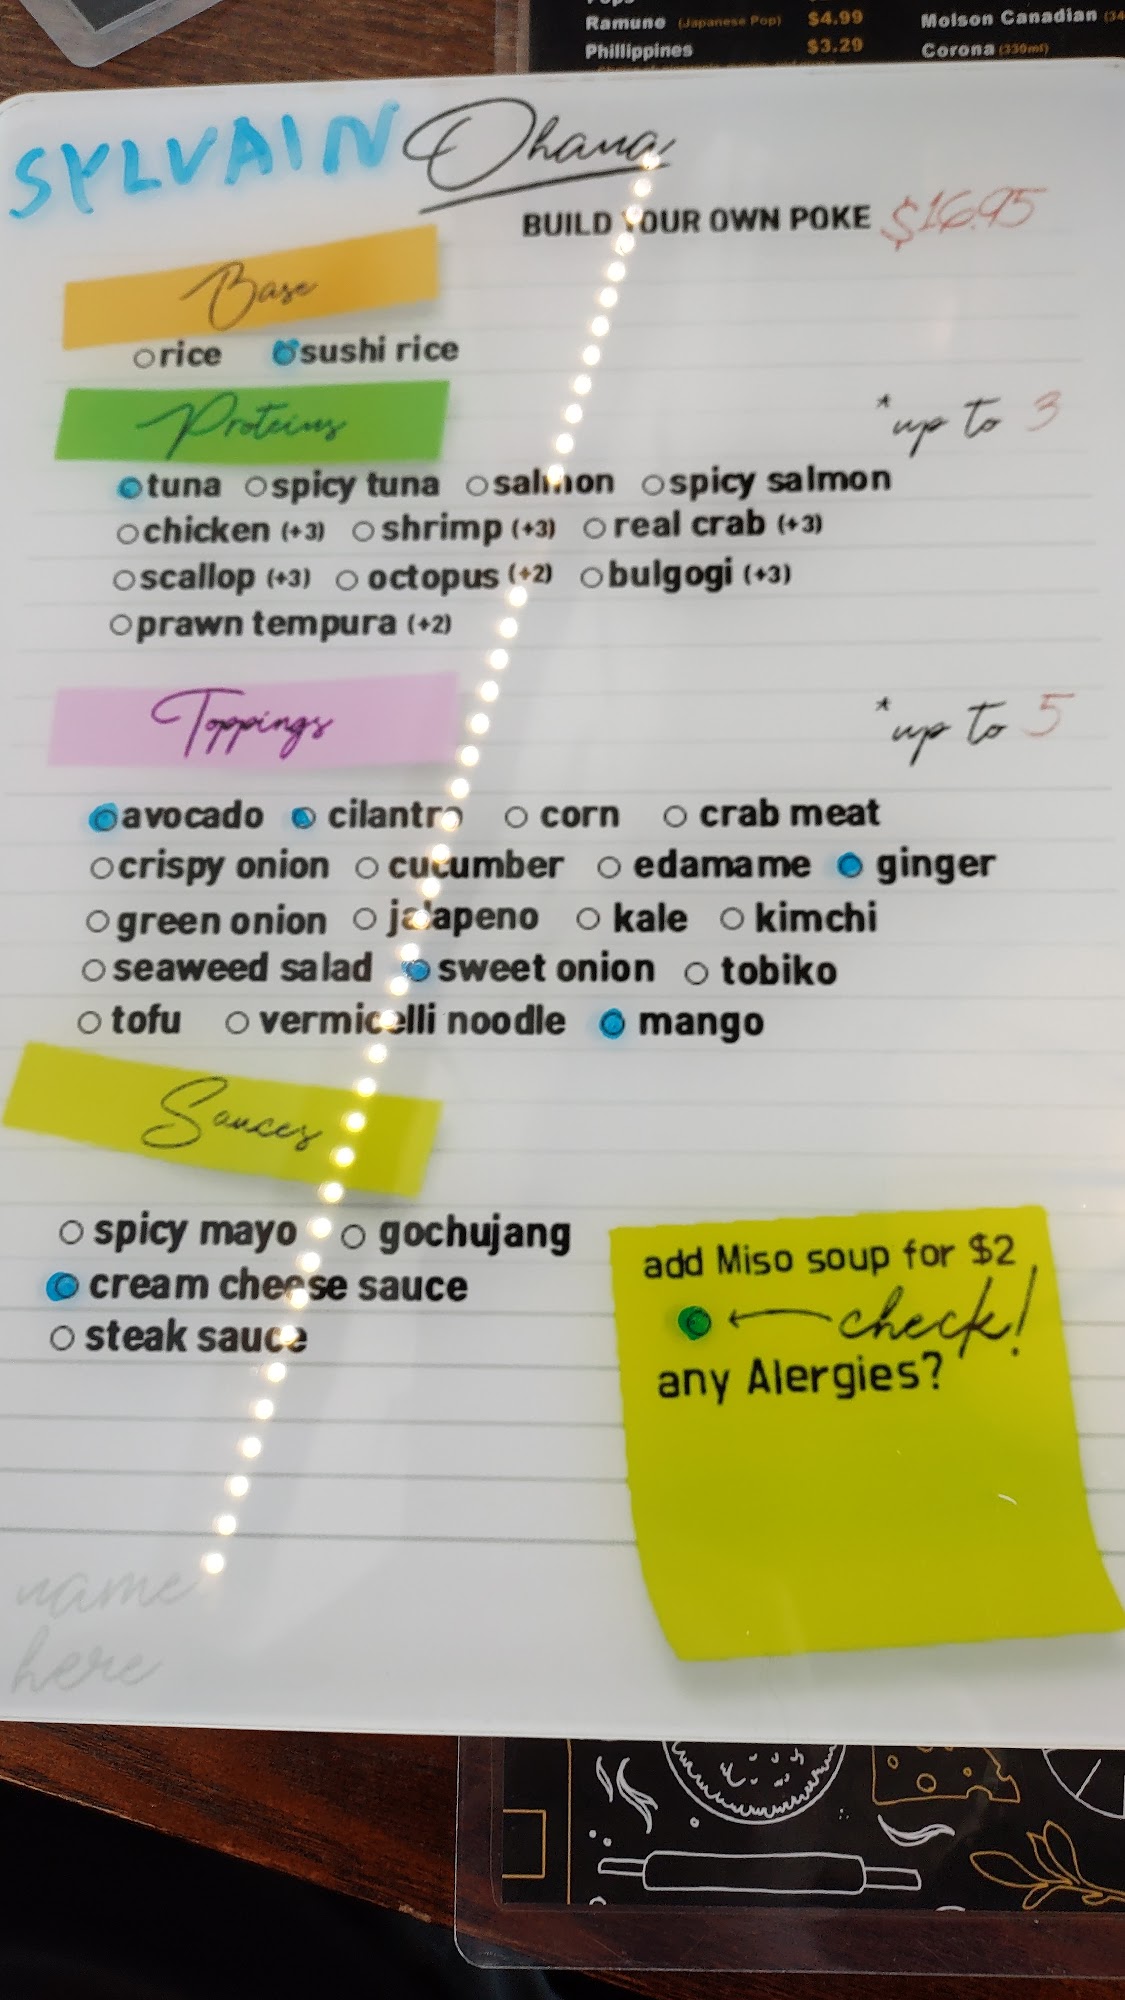 Ramune (Japanese Pop) $4.99 Molson Canadian
Phillippines $3.29 Corona (330ml)
SYLVAIN Ohana
BUILD YOUR OWN POKE $16.95
Base
rice sushi rice
Proteins *up to 3
tuna spicy tuna salmon spicy salmon
chicken (+3) shrimp (+3) real crab (+3)
scallop (+3) octopus (+2) bulgogi (+3)
prawn tempura (+2)
Toppings *up to 5
avocado cilantro corn crab meat
crispy onion cucumber edamame ginger
green onion jalapeno kale kimchi
seaweed salad sweet onion tobiko
tofu vermicelli noodle mango
Sauces
spicy mayo gochujang
cream cheese sauce
steak sauce
add Miso soup for $2
check!
any Alergies?
name
here